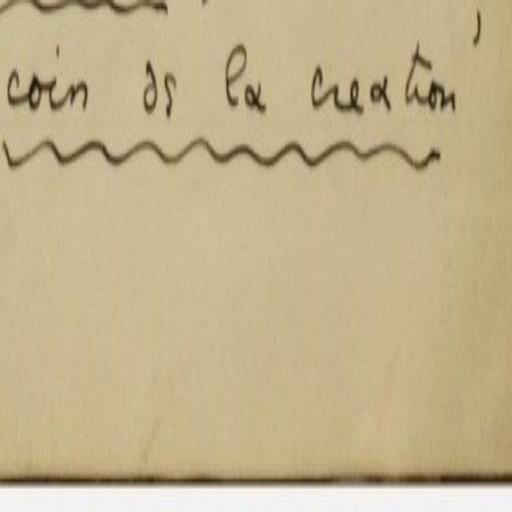 coin ds la creation